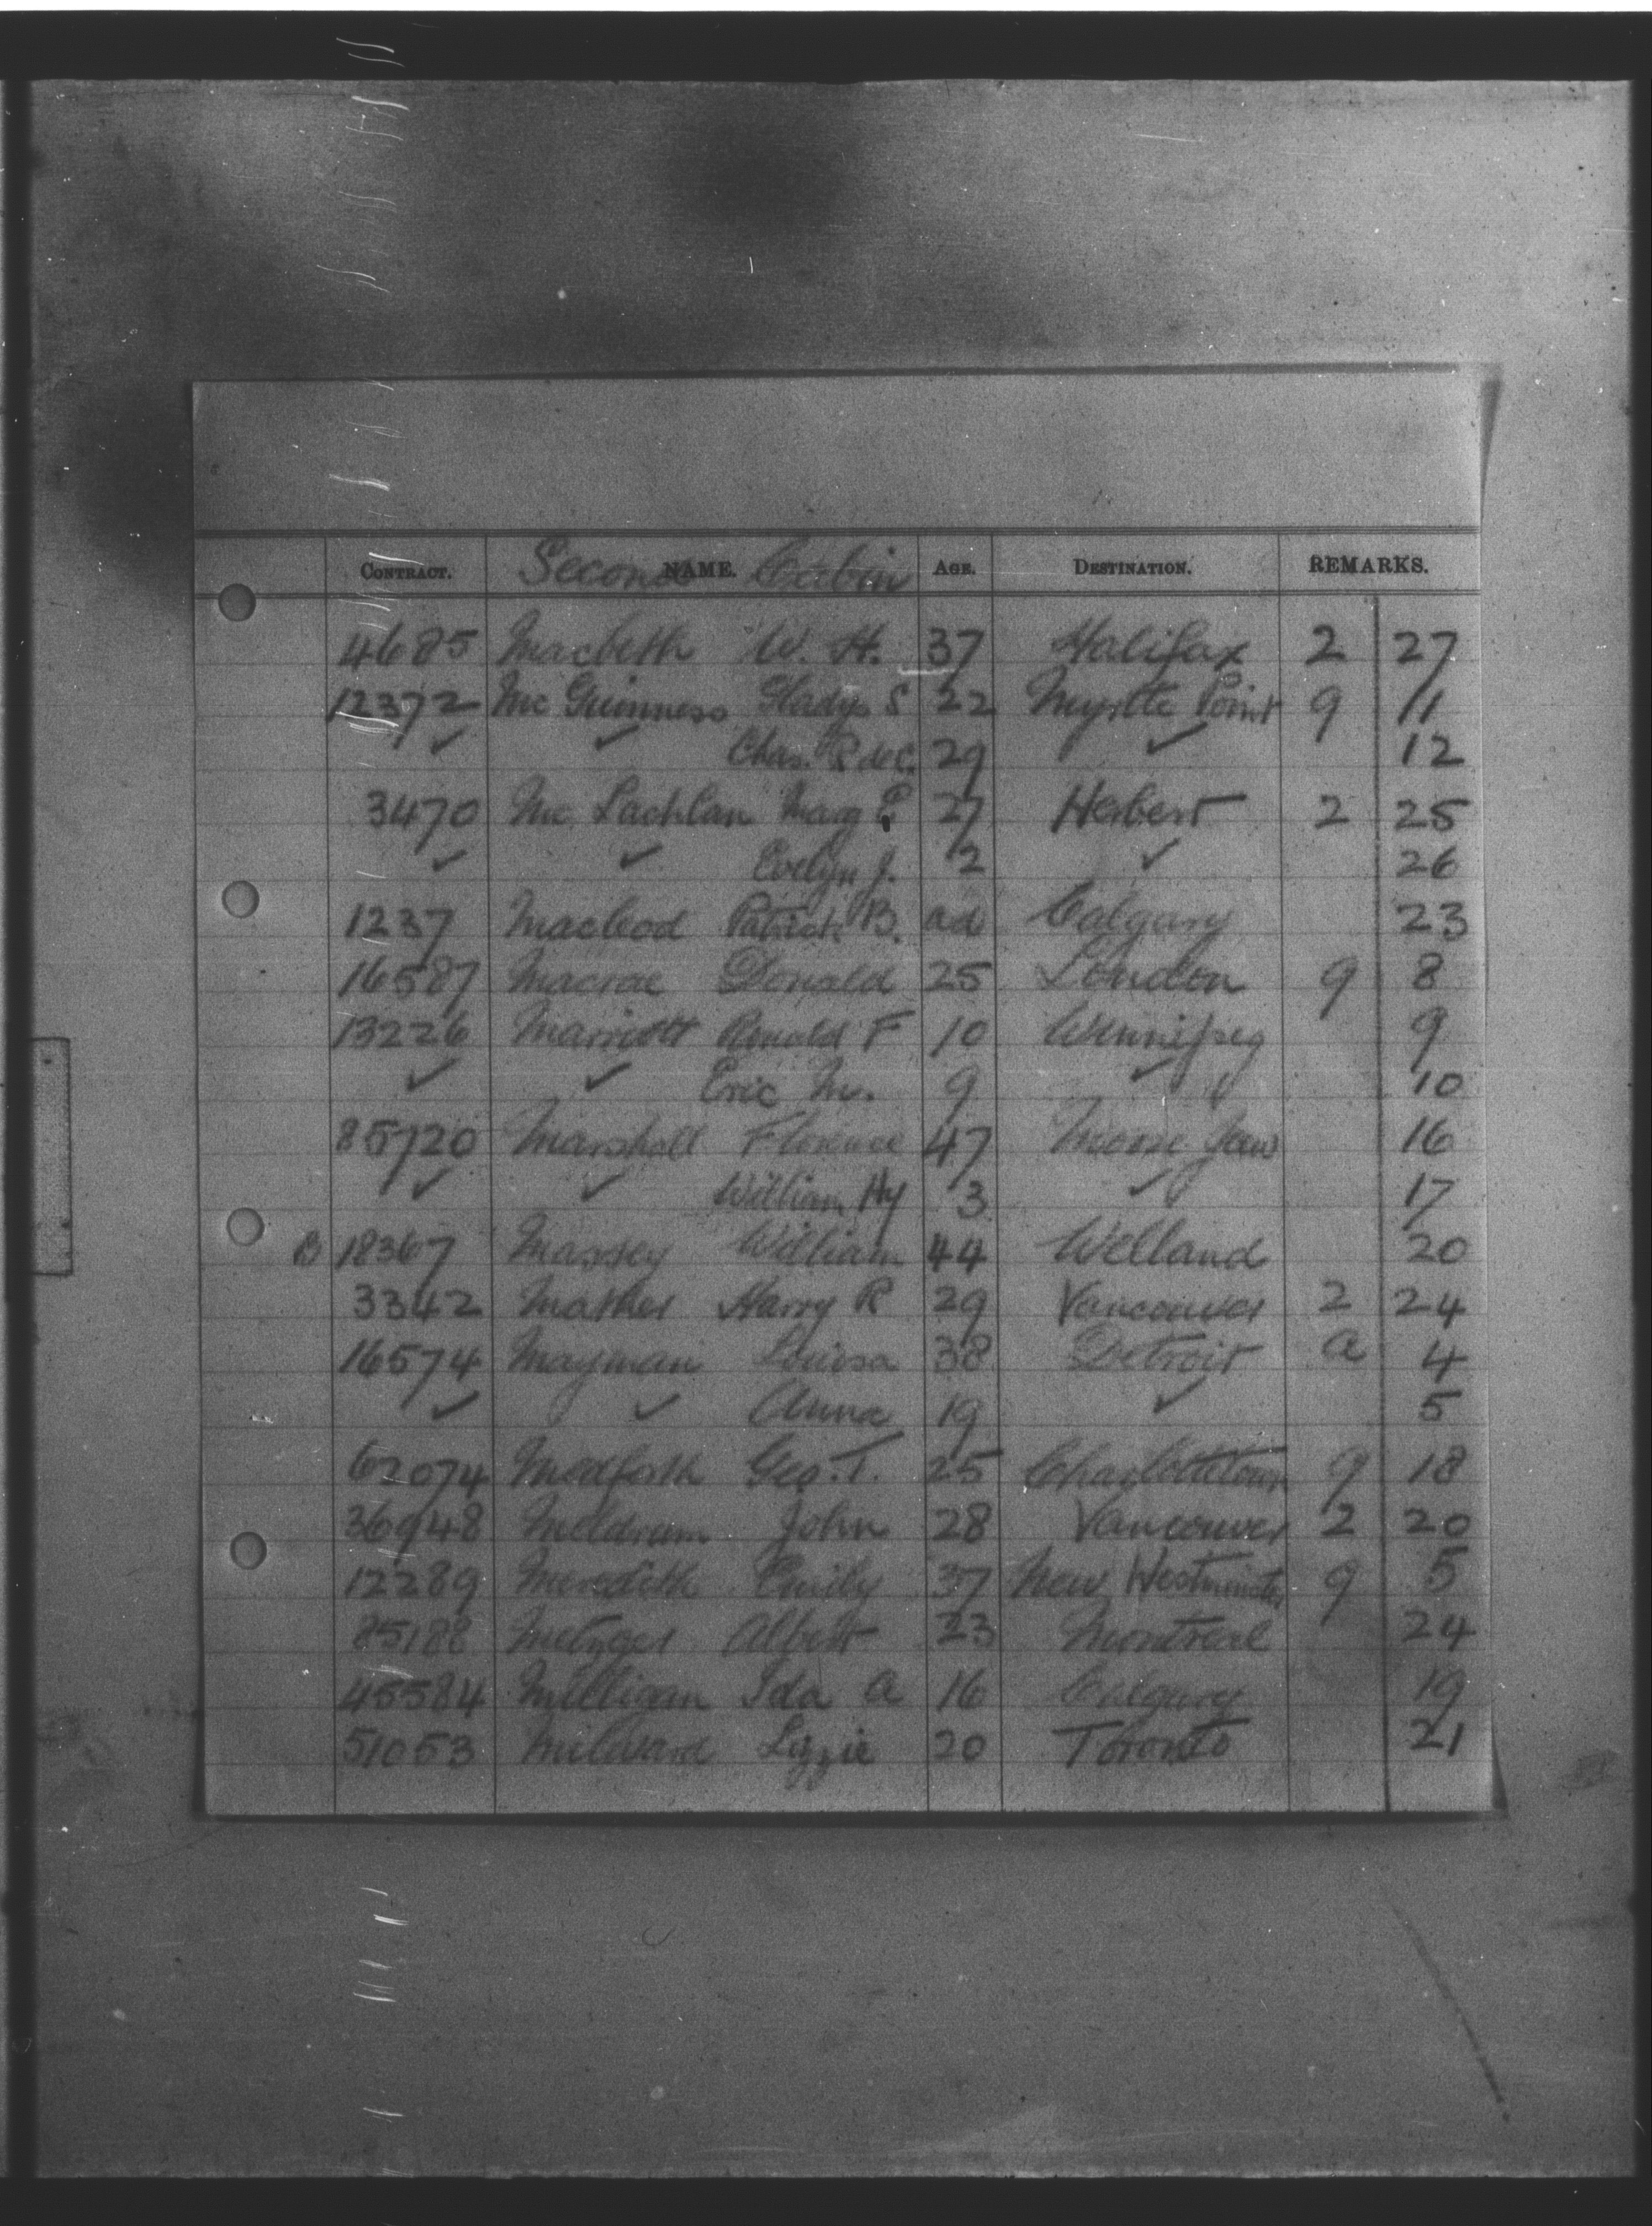 Second Cabin
CONTRACT. NAME. AGE. DESTINATION. REMARKS.
4685 Macbeth W. H. 37 Halifax 2 27
12372 Mc Guinness Gladys S 22 Myrtle Point 9 11
✓ ✓ Chas. R de C. 29 ✓ 12
3470 Mc Lachlan Marg E 27 Herbert 2 25
✓ ✓ Evelyn J. 2 ✓ 26
1237 Macleod Patrick B. ad Calgary 23
16587 Macrae Donald 25 London 9 8
13226 Marriott Ronald F 10 Winnipeg 9
✓ ✓ Eric M. 9 ✓ 10
85720 Marshall Florence 47 Moose Jaw 16
✓ ✓ William Hy 3 ✓ 17
B 18367 Massey William 44 Welland 20
3342 Mather Harry R 29 Vancouver 2 24
16574 Mayman Louisa 38 Detroit a 4
✓ ✓ Anna 19 ✓ 5
62074 Medforth Geo. T. 25 Charlottetown 9 18
36948 Meldrum John 28 Vancouver 2 20
12289 Meredith Emily 37 New Westminster 9 5
85188 Metzger Albert 23 Montreal 24
45584 Milligan Ida A 16 Calgary 19
51053 Milward Lizzie 20 Toronto 21